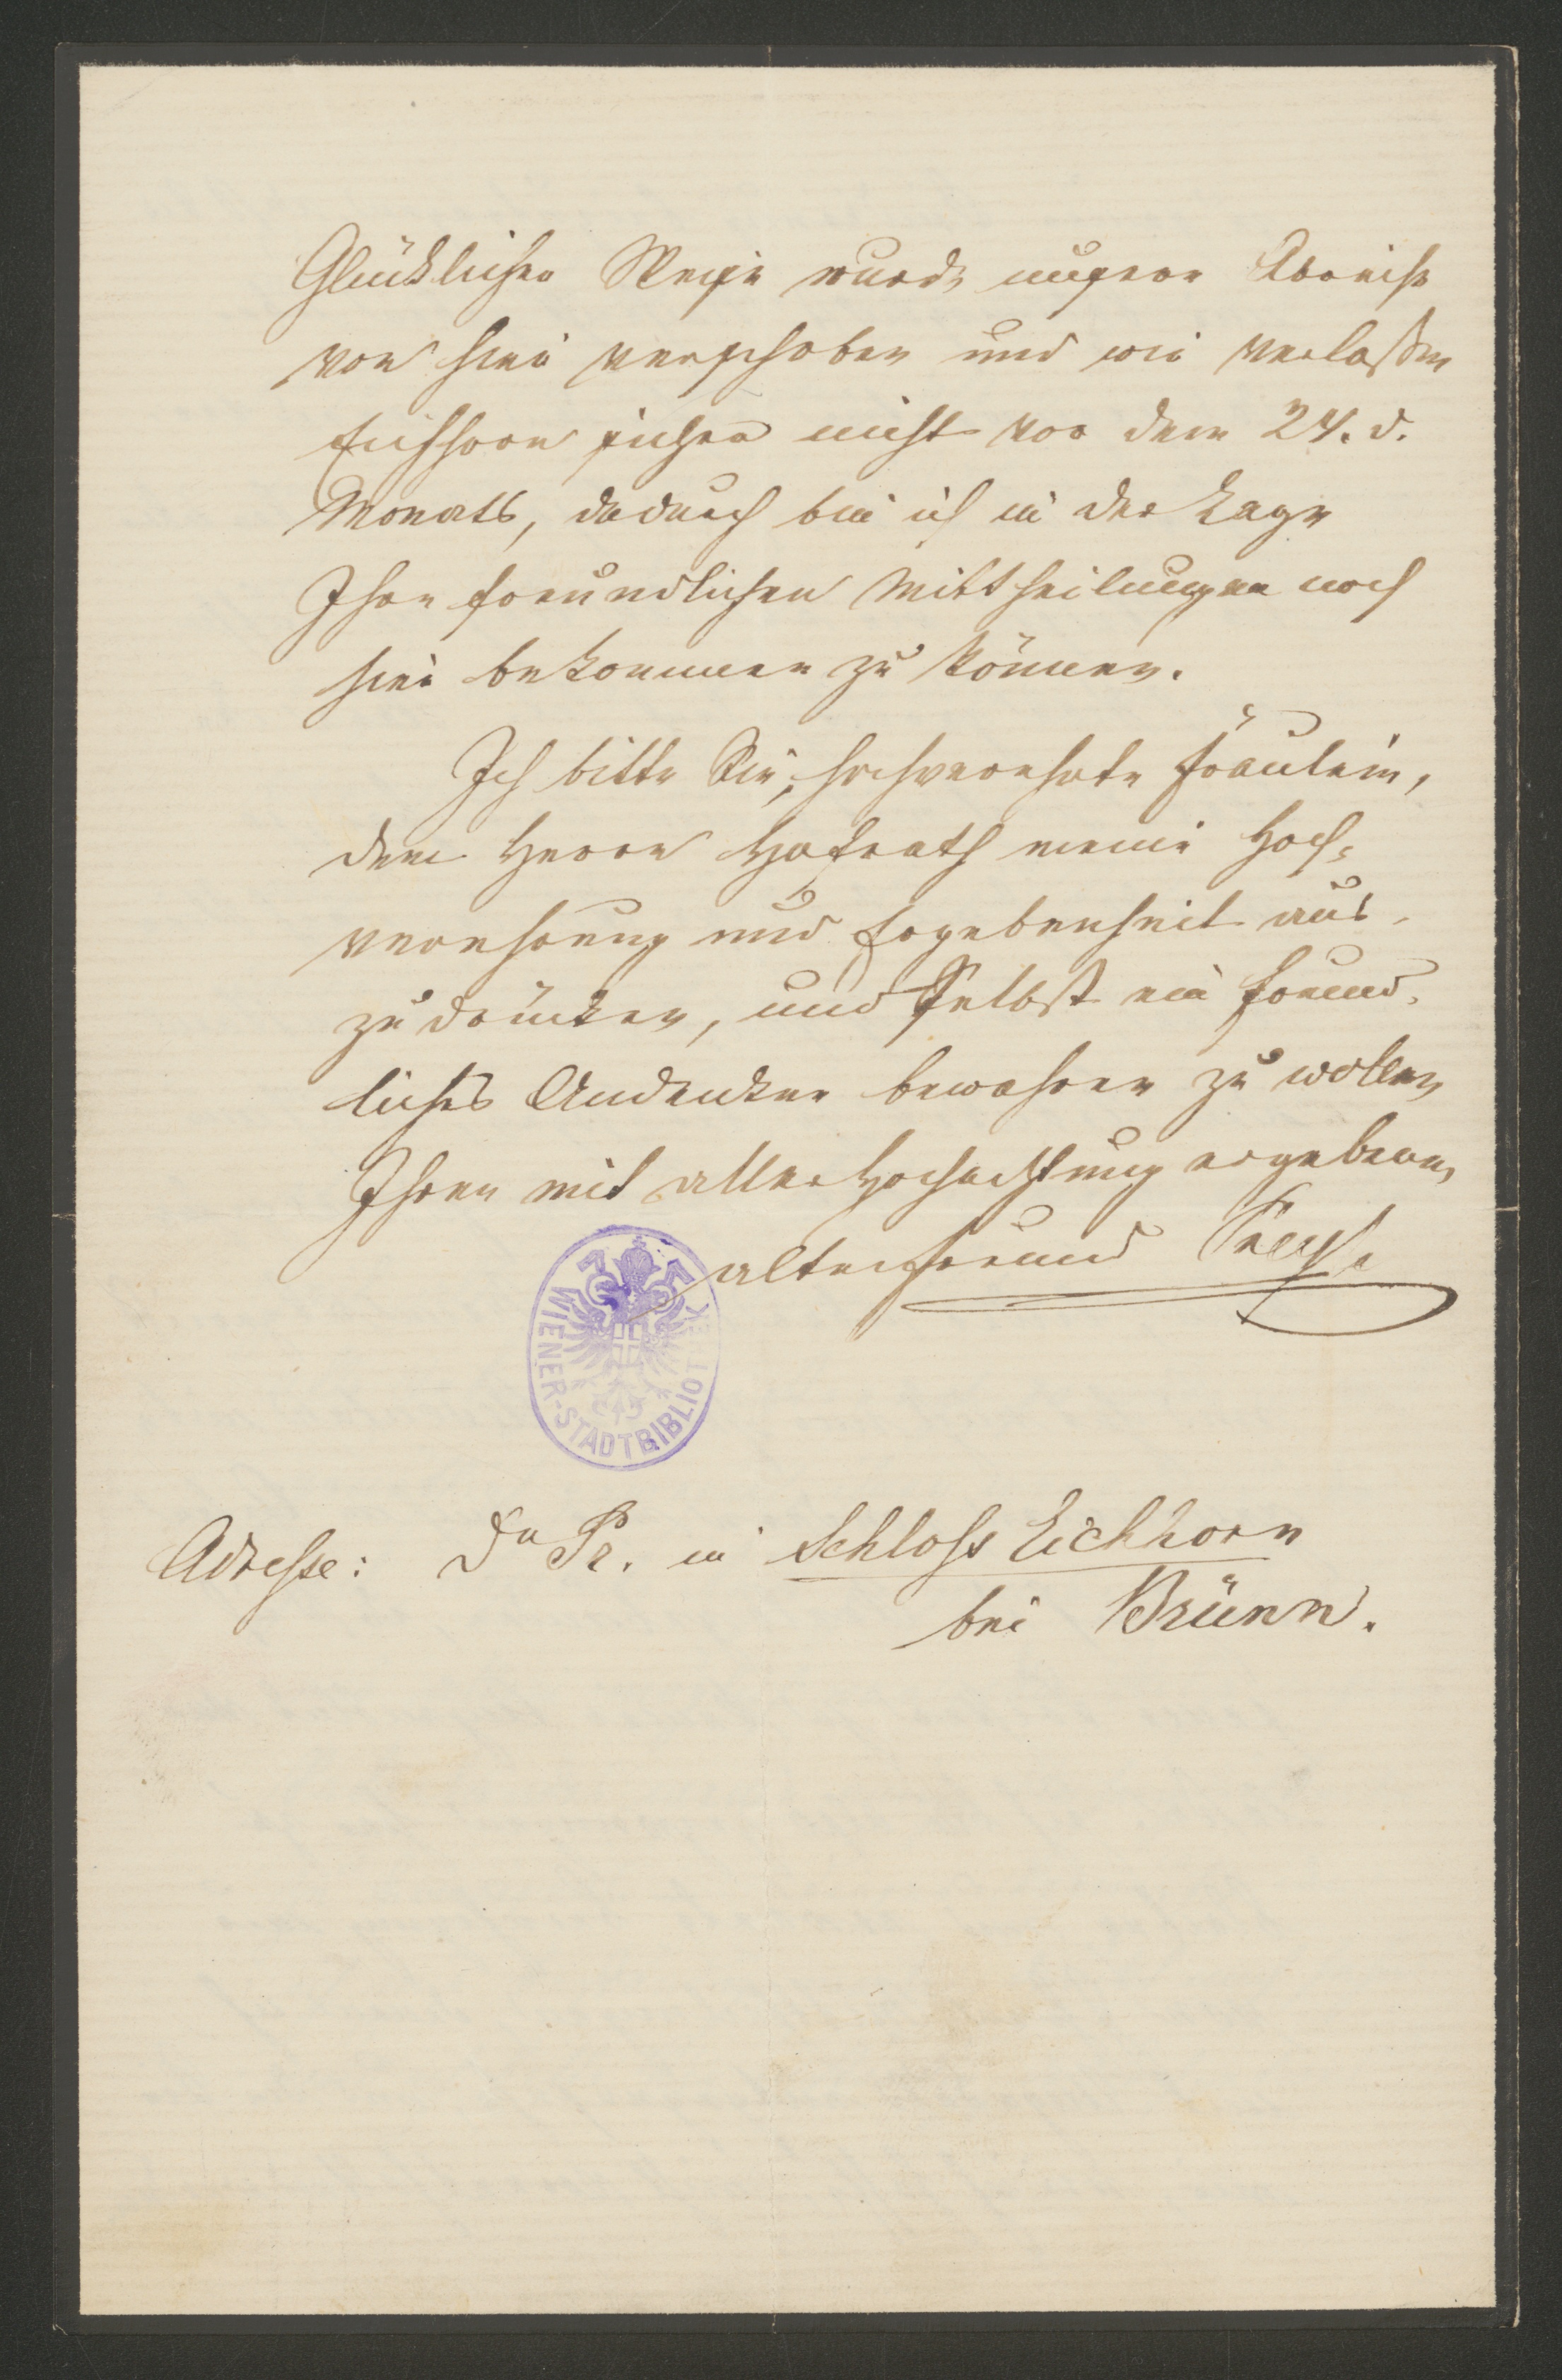 Glücklicher Weise wurde unsere Abreise
von hier verschoben und wir verlassen
Eichhorn sicher nicht vor dem 24. d.
Monats, dadurch bin ich in der Lage
Ihre freundlichen Mittheilungen noch
hier bekommen zu können.
Ich bitte Sie, hochverehrte Fräulein,
dem Herrn Hofrath meine Hoch-
verehrung und Ergebenheit aus-
zudrücken, und Selbst ein freund-
liches Andenken bewahren zu wollen
Ihren mit aller Hochachtung ergebenen
alten Freund
WIENER-STADTBIBLIOTHEK
Adresse: Dr Pr. in Schloss Eichhorn
bei Brünn.